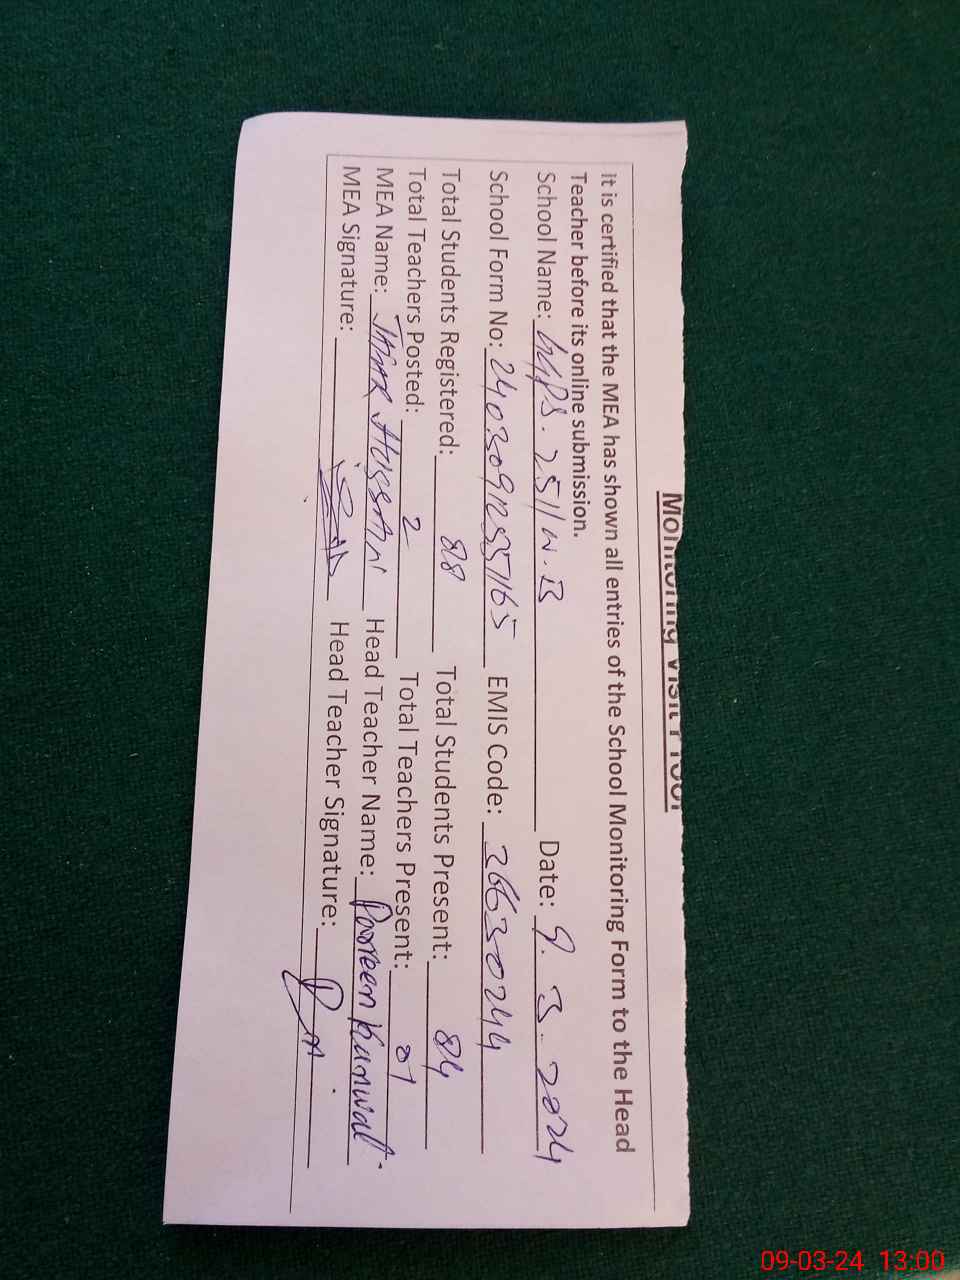 Monitoring Visit Proof
It is certified that the MEA has shown all entries of the School Monitoring Form to the Head
Teacher before its online submission.
School Name: GGPS. 251/W.B Date: 9. 3. 2024
School Form No: EMIS Code: 36630244
Total Students Registered: 88 Total Students Present: 84
Total Teachers Posted: 2 Total Teachers Present: 01
MEA Name: Hussain Head Teacher Name: Kanwal
MEA Signature: Head Teacher Signature:
09-03-24 13:00